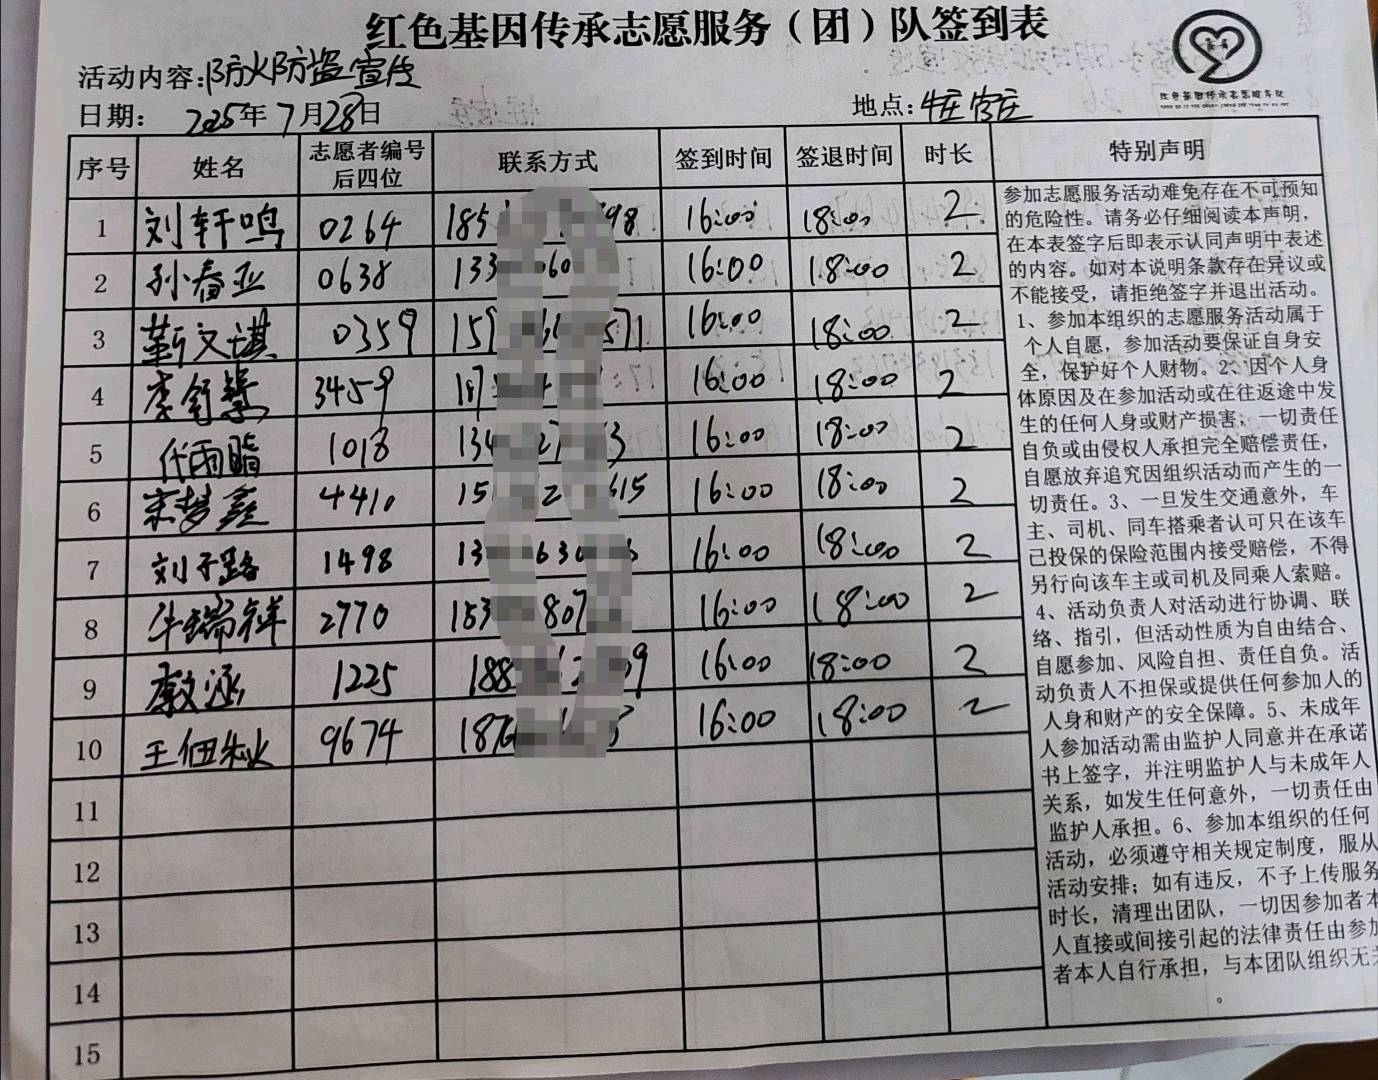 红色基因传承志愿服务（团）队签到表
活动内容:防火防盗宣传
日期: 2025年7月28日 地点:
红色基因传承志愿服务队
序号 姓名 志愿者编号后四位 联系方式 签到时间 签退时间 时长 特别声明
1 刘轩鸣 0264 185 98 16:00 18:00 2
2 孙春亚 0638 133 60 16:00 18:00 2
3 靳文琪 0359 159 6 571 16:00 18:00 2
4 李 3459 187 16:00 18:00 2
5 代雨 1018 134 27 3 16:00 18:00 2
6 宋梦鑫 4410 15 2 615 16:00 18:00 2
7 刘子路 1498 13 630 16:00 18:00 2
8 牛瑞祥 2770 153 807 16:00 18:00 2
9 涵 1225 188 2 9 16:00 18:00 2
10 王 9674 187 16:00 18:00 2
11
12
13
14
15
参加志愿服务活动难免存在不可预知
的危险性。请务必仔细阅读本声明，
在本表签字后即表示认同声明中表述
的内容。如对本说明条款存在异议或
不能接受，请拒绝签字并退出活动。
1、参加本组织的志愿服务活动属于
个人自愿，参加活动要保证自身安
全，保护好个人财物。2、因个人身
体原因及在参加活动或在往返途中发
生的任何人身或财产损害，一切责任
自负或由侵权人承担完全赔偿责任，
自愿放弃追究因组织活动而产生的一
切责任。3、一旦发生交通意外，车
主、司机、同车搭乘者认可只在该车
已投保的保险范围内接受赔偿，不得
另行向该车主或司机及同乘人索赔。
4、活动负责人对活动进行协调、联
络、指引，但活动性质为自由结合、
自愿参加、风险自担、责任自负。活
动负责人不担保或提供任何参加人的
人身和财产的安全保障。5、未成年
人参加活动需由监护人同意并在承诺
书上签字，并注明监护人与未成年人
关系，如发生任何意外，一切责任由
监护人承担。6、参加本组织的任何
活动，必须遵守相关规定制度，服从
活动安排；如有违反，不予上传服务
时长，清理出团队，一切因参加者本
人直接或间接引起的法律责任由参加
者本人自行承担，与本团队组织无关
。